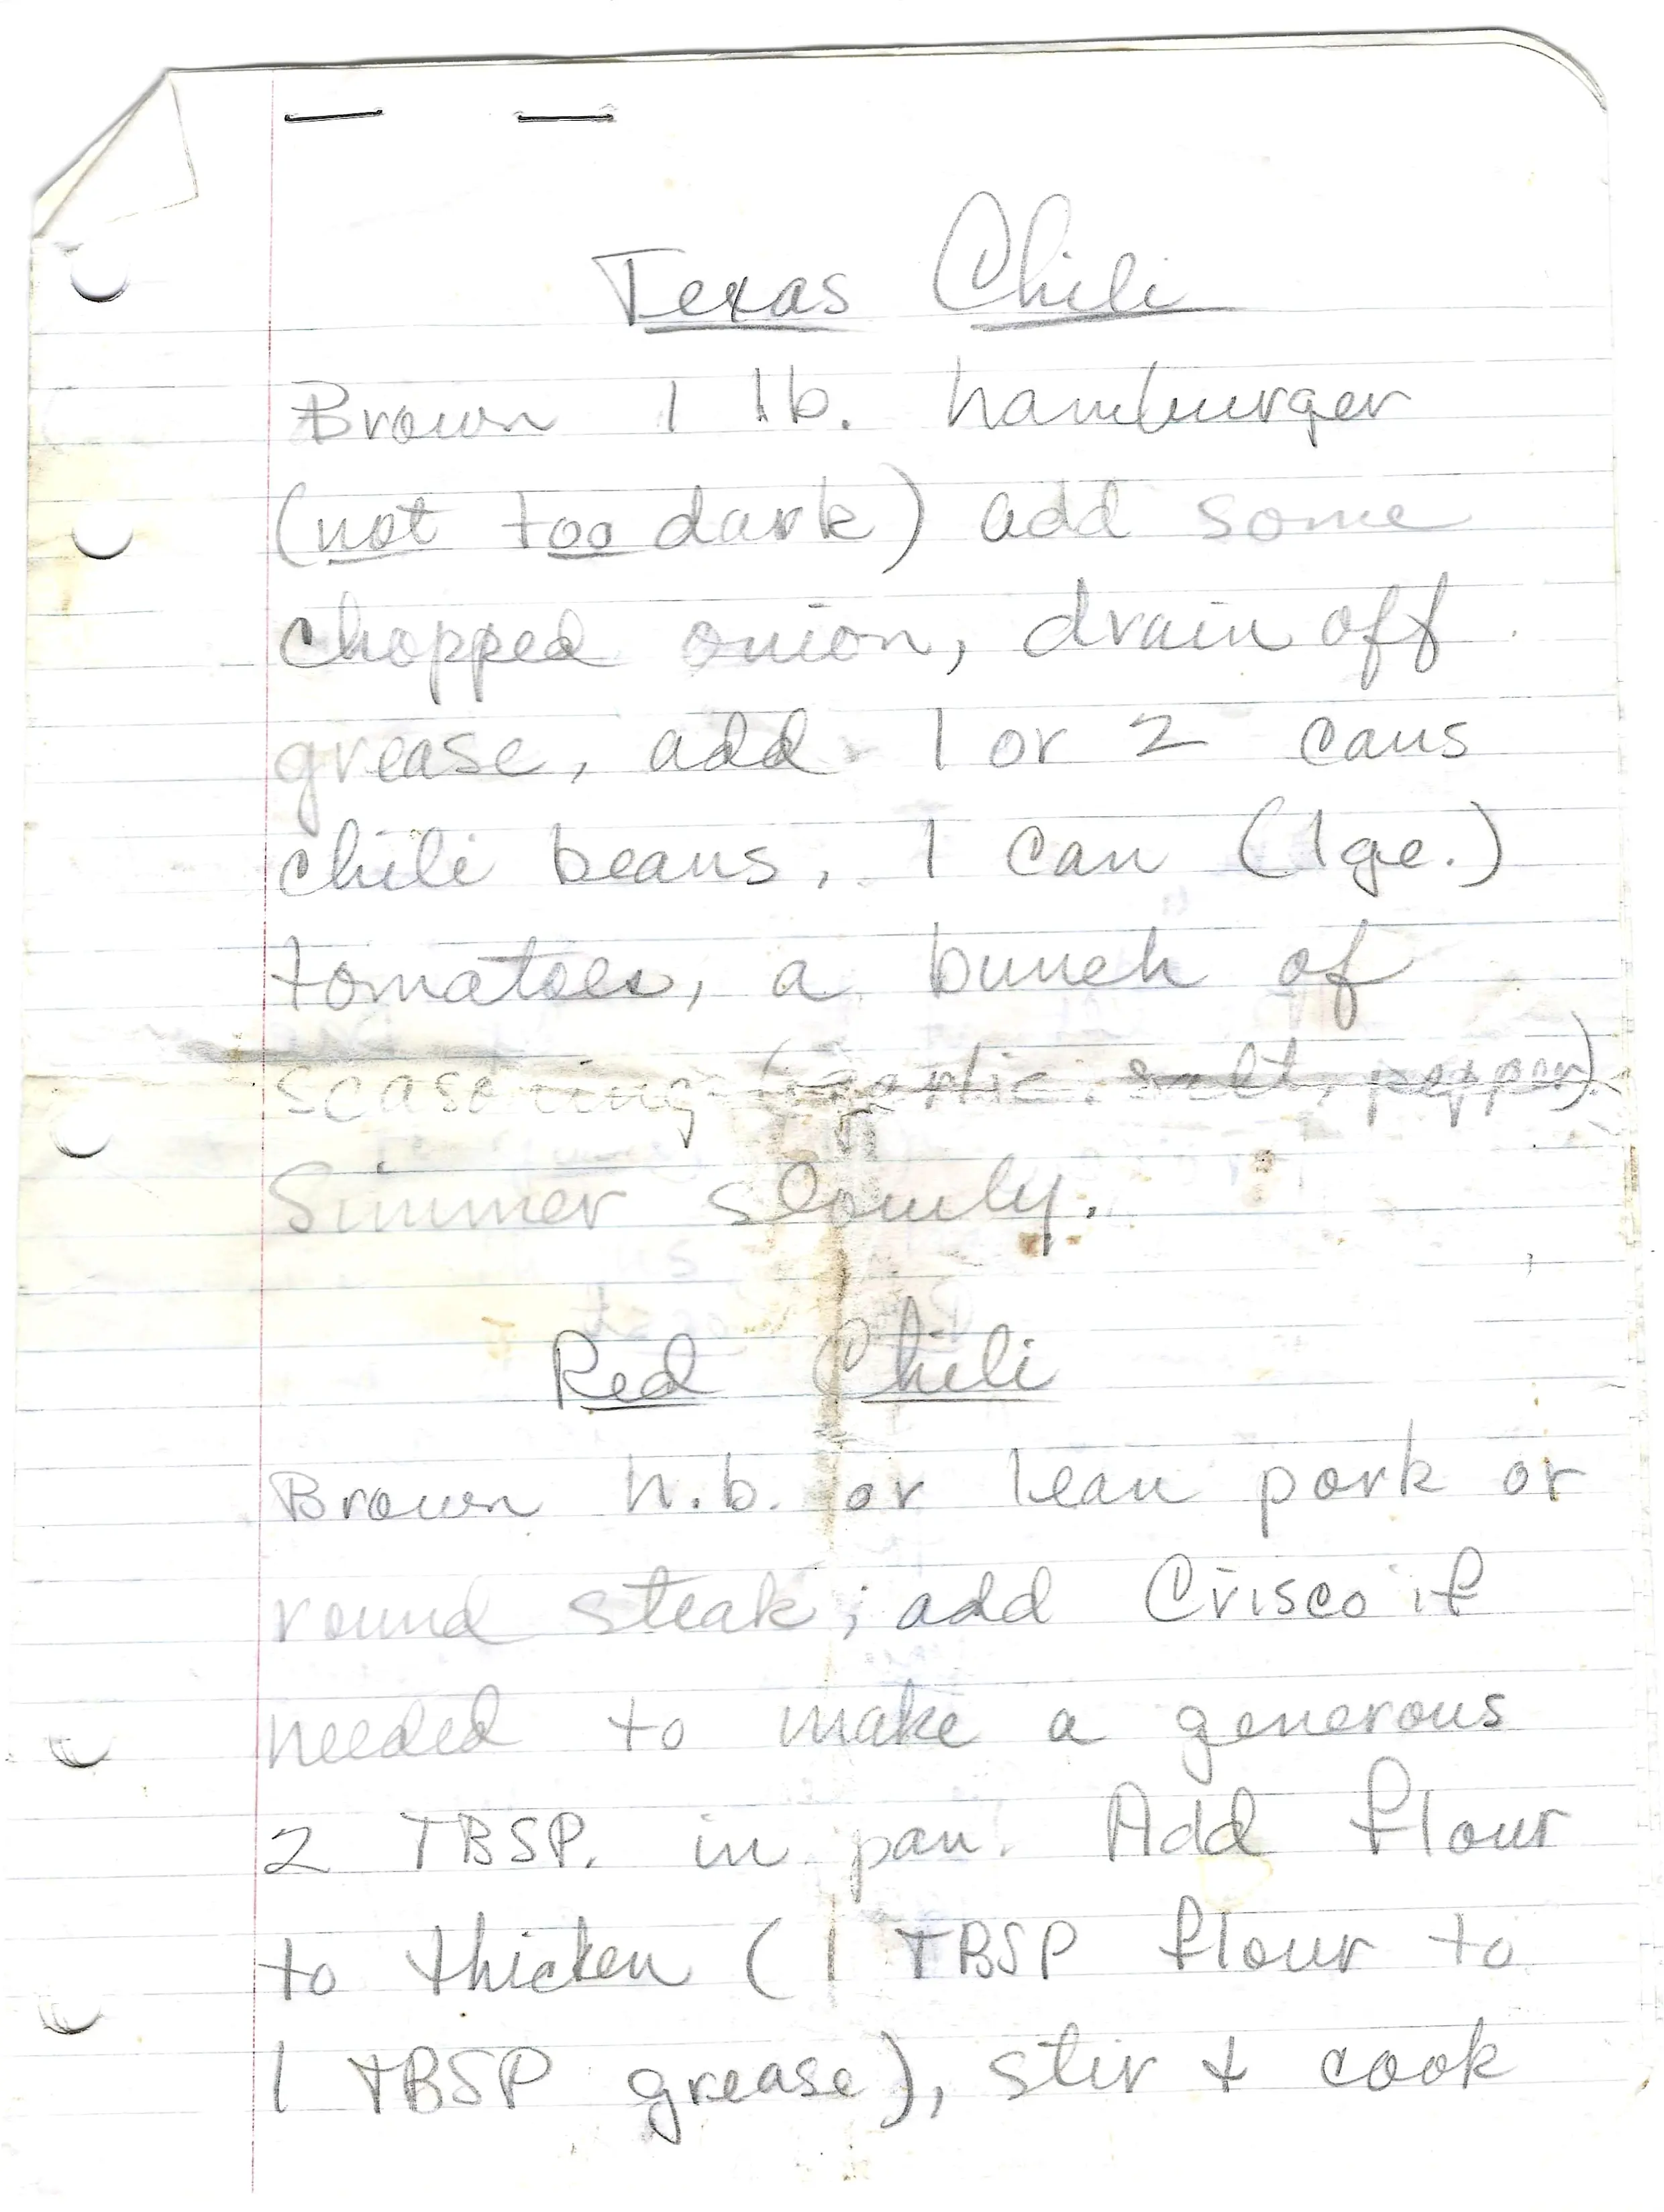 Texas Chili
Brown 1 lb. hamburger
(not too dark) add some
chopped onion, drain off
grease, add 1 or 2 cans
chili beans, 1 can (lge.)
tomatoes, a bunch of
seasoning (garlic, salt, pepper).
Simmer slowly.
Red Chili
Brown h.b. or lean pork or
round steak; add Crisco if
needed to make a generous
2 TBSP. in pan. Add flour
to thicken (1 TBSP flour to
1 TBSP grease), stir + cook